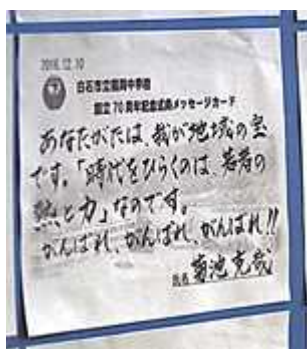 2016.12.10
白石市立福岡中学校
創立70周年記念式典メッセージカード
あなたがたは、我が地域の宝
です。「時代をひらくのは、若者の
熱と力」なのです。
がんばれ、がんばれ、がんばれ!!
氏名 菊池克哉